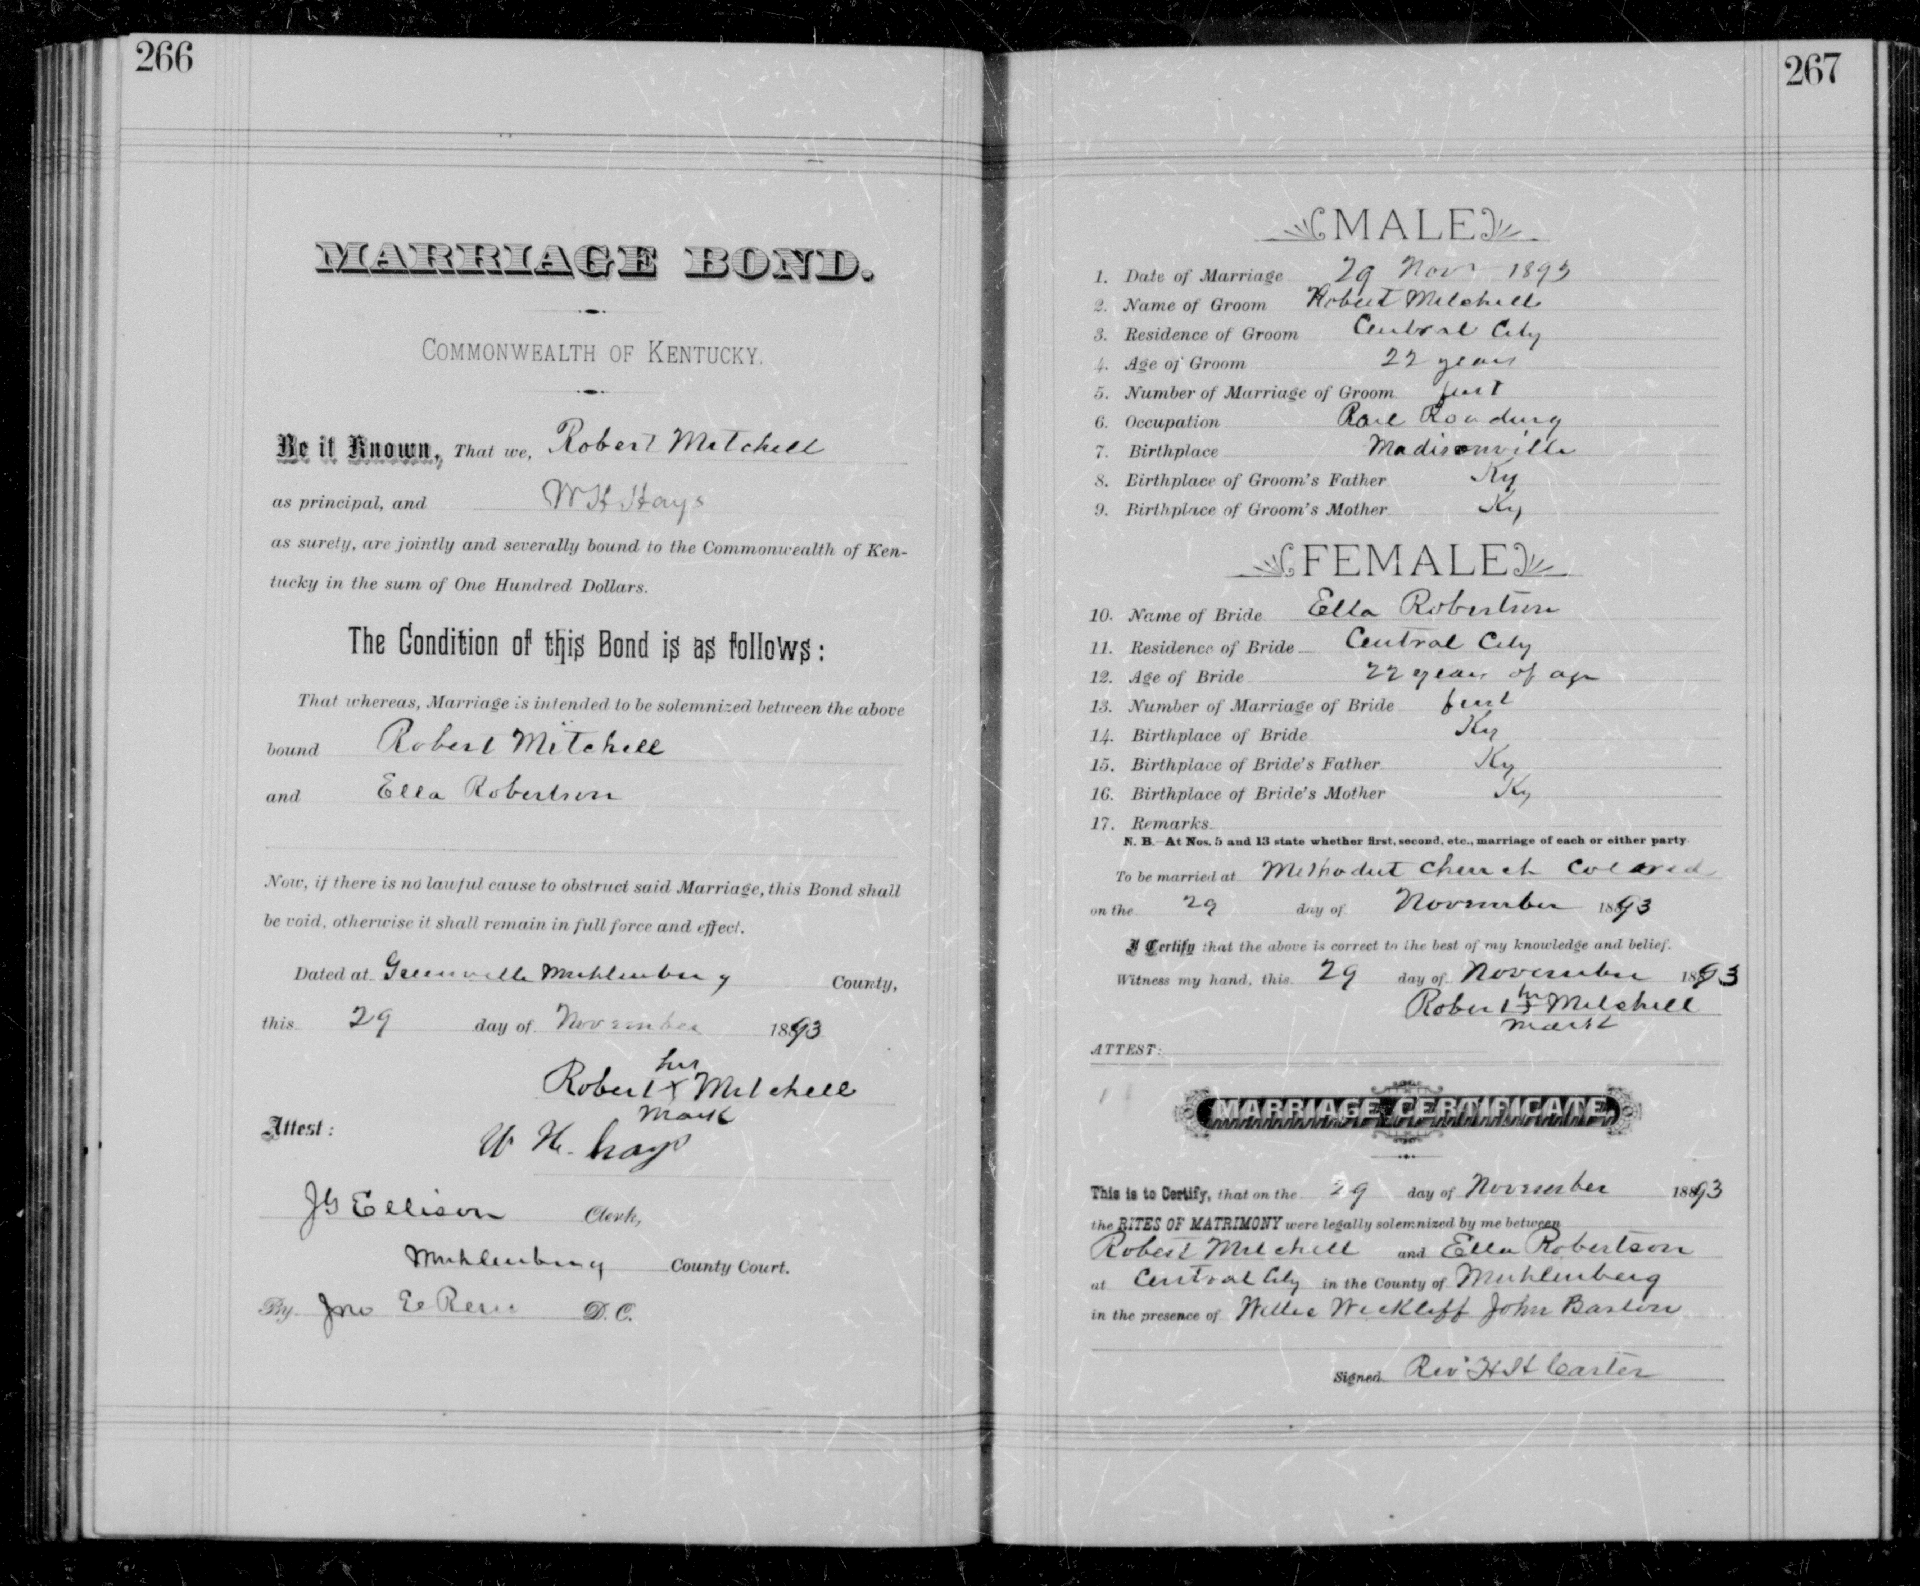 266
MARRIAGE BOND.
COMMONWEALTH OF KENTUCKY.
Be it Known, That we, Robert Mitchell
as principal, and W H Hays
as surety, are jointly and severally bound to the Commonwealth of Ken-
tucky in the sum of One Hundred Dollars.
The Condition of this Bond is as follows:
That whereas, Marriage is intended to be solemnized between the above
bound Robert Mitchell
and Ella Robertson
Now, if there is no lawful cause to obstruct said Marriage, this Bond shall
be void, otherwise it shall remain in full force and effect.
Dated at Greenville Muhlenburg County,
this 29 day of November 1893
his
Robert X Mitchell
mark
Attest:
W H. Hays
J G Ellison Clerk,
Muhlenburg County Court.
By Jno E Reno D. C.
267
MALE
1. Date of Marriage 29 Nov 1893
2. Name of Groom Robert Mitchell
3. Residence of Groom Central City
4. Age of Groom 22 years
5. Number of Marriage of Groom first
6. Occupation Rail Roading
7. Birthplace Madisonville
8. Birthplace of Groom's Father Ky
9. Birthplace of Groom's Mother Ky
FEMALE
10. Name of Bride Ella Robertson
11. Residence of Bride Central City
12. Age of Bride 22 years of age
13. Number of Marriage of Bride first
14. Birthplace of Bride Ky
15. Birthplace of Bride's Father Ky
16. Birthplace of Bride's Mother Ky
17. Remarks
N. B.—At Nos. 5 and 13 state whether first, second, etc., marriage of each or either party
To be married at Methodist Church Colored
on the 29 day of November 1893
I Certify that the above is correct to the best of my knowledge and belief.
Witness my hand, this 29 day of November 1893
his
Robert X Mitchell
mark
ATTEST:
MARRIAGE CERTIFICATE.
This is to Certify, that on the 29 day of November 1893
the RITES OF MATRIMONY were legally solemnized by me between
Robert Mitchell and Ella Robertson
at Central City in the County of Muhlenberg
in the presence of Willie Wickliff John Barton
Signed Rev H H Carter